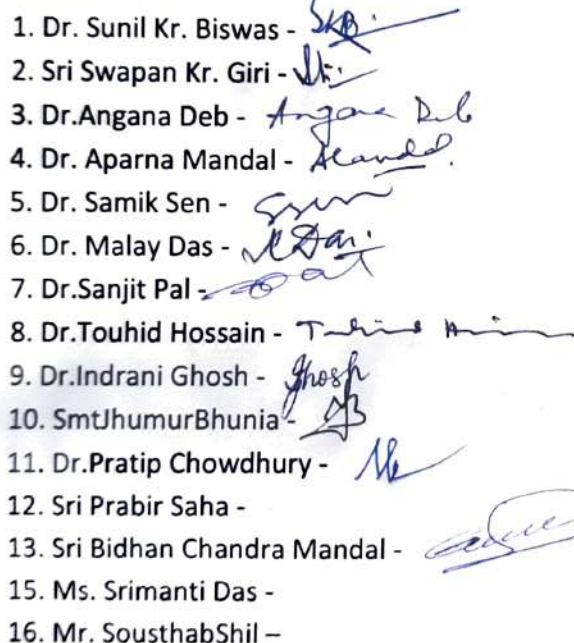 1. Dr. Sunil Kr. Biswas - SKB.
2. Sri Swapan Kr. Giri -
3. Dr.Angana Deb - Angana Deb
4. Dr. Aparna Mandal - AMandal.
5. Dr. Samik Sen - SSen
6. Dr. Malay Das - MDas.
7. Dr.Sanjit Pal -
8. Dr.Touhid Hossain -
9. Dr.Indrani Ghosh - Ghosh
10. SmtJhumurBhunia -
11. Dr.Pratip Chowdhury -
12. Sri Prabir Saha -
13. Sri Bidhan Chandra Mandal -
15. Ms. Srimanti Das -
16. Mr. SousthabShil –